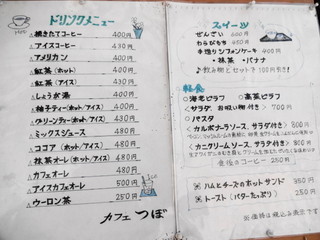 ドリンクメニュー
△焼きたてコーヒー 400円
△アイスコーヒー 430円
△アメリカン 400円
△紅茶(ホット) 400円
△紅茶(アイス) 430円
△しょうが湯 400円
△柚子ティー(ホット/アイス) 430円
△グリーンティー(ホット/アイス) 430円
△ミックスジュース 480円
△ココア(ホット/アイス) 480円
△抹茶オレ(ホット/アイス) 480円
△カフェオーレ 480円
△アイスカフェオーレ 500円
△ウーロン茶 250円
カフェ つぼ
スイーツ
ぜんざい 400円
わらびもち 350円
手造りシフォンケーキ 400円
・抹茶 ・バナナ
♪飲み物とセットで100円引き!
軽食
○海老ピラフ ○高菜ピラフ
・サラダ お吸い物付き 700円
○パスタ
<カルボナーラソース、サラダ付き> 700円
<カニクリームソース、サラダ付き> 700円
食後のコーヒー 250円
ハムとチーズのホットサンド 350円
トースト(バターたっぷり) 250円
※価格は税込み表示です